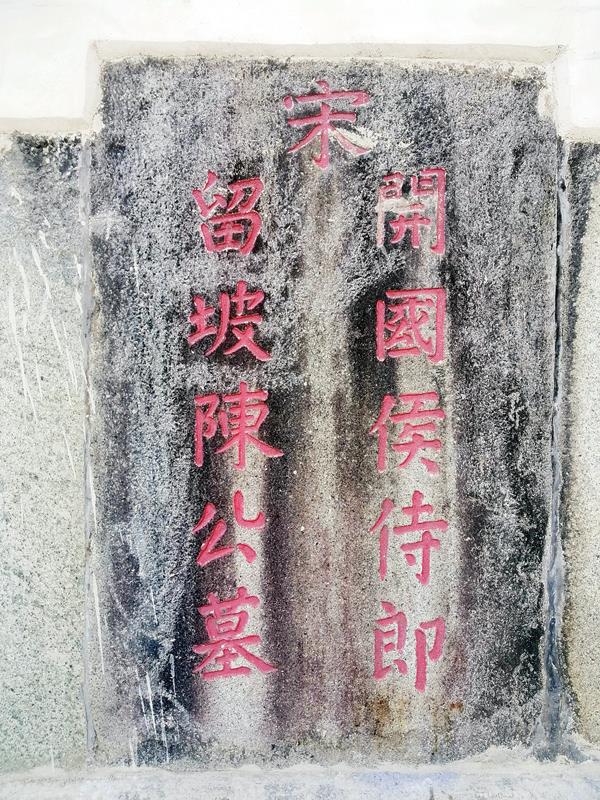 宋
開國侯侍郎
留坡陳公墓